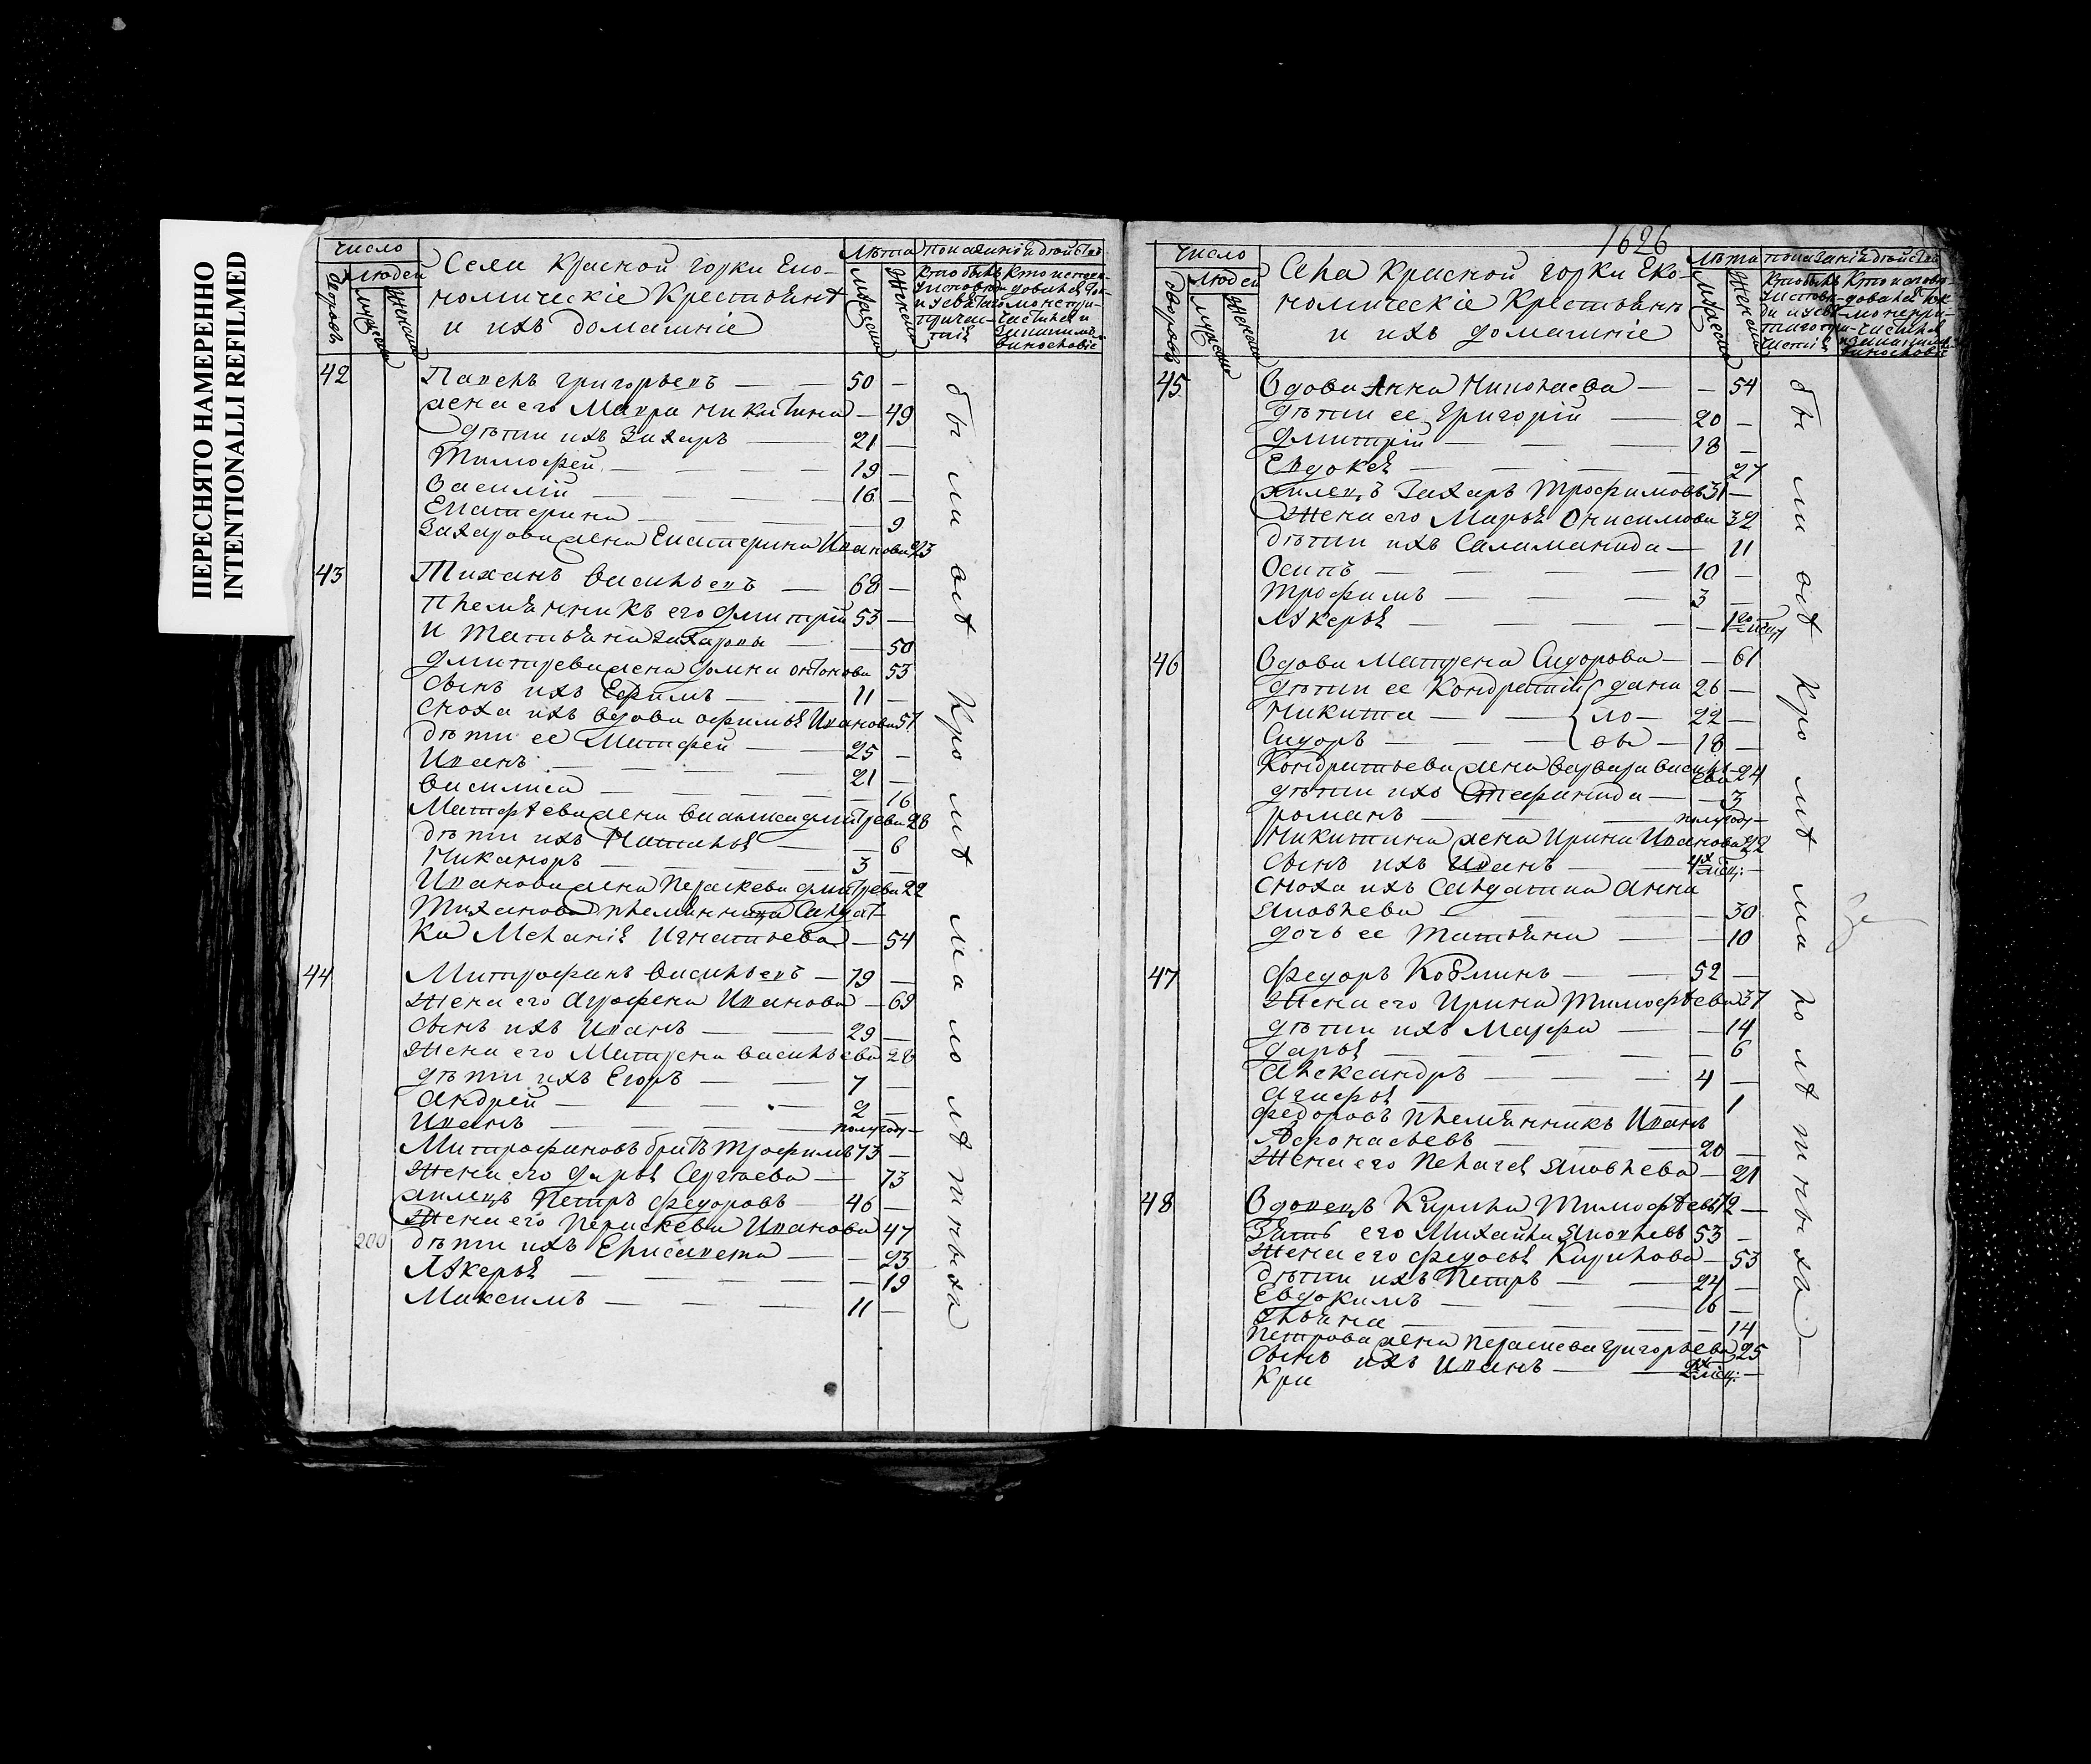 ПЕРЕСНЯТО НАМЕРЕННО
INTENTIONALLI REFILMED
число
людей
дворовъ
мужеска
женска
Села Красной горки Еко-
номическіе Крестьяне
и ихъ домашніе
Лѣта
мужеска
женска
показаніе действъ
42 Павелъ григорьевъ — — 50 —
жена его Мавра никитина — 49
дѣти ихъ Захаръ — 21 —
Тимофей — — — 19 —
Василій — — — 16 —
Екатерина — — — — 9
Захарова жена Екатерина Иванова 23
43 Тиханъ Васильевъ — 68 —
племянникъ его дмитрій 53 —
и татьяна Захарова — — 50
дмитрева жена домна онтонова 53
сынъ ихъ Ефимъ — — 11 —
сноха ихъ вдова офимья Иванова 51
дѣти ее Матфей — — 25 —
Иванъ — — — — 21 —
василиса — — — — 16
Матфѣева жена василиса дмитрева 28
дѣти ихъ Наталья — — 6
Никаноръ — — — 3 —
Иванова жена Праскева дмитрева 22
Тиханова племянница Салдат-
ка Меланія Игнатьева — 54
44 Митрофанъ васильевъ — 79 —
жена его Аграфена Иванова — 69
сынъ ихъ Иванъ — — 29 —
жена его Матрена васильева 28
дѣти ихъ Егоръ — — 7 —
андрей — — — 2 —
Иванъ — — — — полугоду —
Митрофановъ братъ трофимъ 73 —
жена его дарья Сергѣева — 73
жилецъ Петръ Федоровъ — 46 —
жена его Праскева Иванова 47
200
дѣти ихъ Елисавета — — 23
Лукерья — — — — 19
Максимъ — — — 11 —
были оле Кроме малолетныха
1626
число
людей
дворовъ
мужеска
женска
Села Красной горки Еко-
номическіе Крестьяне
и ихъ домашніе
Лѣта
мужеска
женска
показаніе действъ
45 Вдова Анна Николаева — — 54
дѣти ее григорій — 20 —
дмитрій — — — 18 —
Евдокея — — — — 27
жилецъ Захаръ Трофимовъ 31 —
жена его Марья Онисимова 32
дѣти ихъ Саламанида — 11
Осипъ — — — 10 —
трофимъ — — — 3 —
Лукерья — — — —
46 Вдова Матрена Сидорова — — 61
дѣти ее Кондратій { дани 26 —
Никита — — { ло — 22 —
Сидоръ — — { вы — 18 —
Кондратьева жена варвара василь-
ева 24
дѣти ихъ Стефанида — — 3
романъ — — — полугоду —
Никитина жена Ирина Иванова 22
сынъ ихъ Иванъ — 4х мсц: —
сноха ихъ Салдатка анна
яковлева — — — 30
дочь ее татьяна — — 10
47 Федоръ Козминъ — — 52 —
жена его Ирина Тимофѣева 37
дѣти ихъ Марфа — — 14
дарья — — — — 6
Александръ — — — 4 —
агафья — — — — 1
федоровъ племянникъ Иванъ
Афонасьевъ — — 20 —
жена его Пелагея яковлева — 21
48 Вдовецъ Кирила Тимофѣевъ 72 —
Зять его Михайла яковлевъ 53 —
жена его федосья Кирилова — 53
дѣти ихъ Петръ — — 24 —
Евдокимъ — — — 16 —
ульяна — — — — 14
петрова жена праскева григорьева 25
сынъ ихъ Иванъ — 2х мсц: —
Кри
были оле Кроме малолетныхъ —